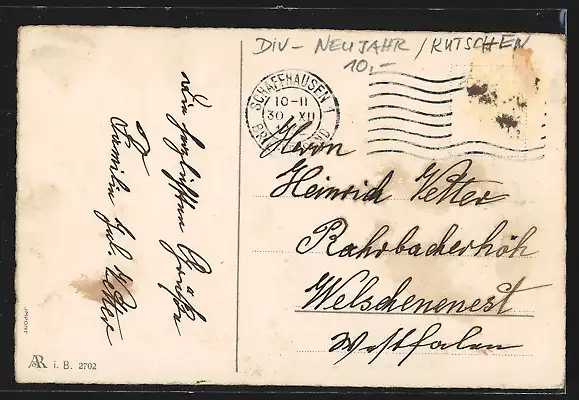 DIV - NEUJAHR / KUTSCHEN
10,-
SCHAFFHAUSEN 1
10-11
30 XII
Die herzlichsten Grüße
Familie Jul. Vetter
Herrn
Heinrich Vetter
Rahrbacherhöh
Welschenenest
Westfalen
IMPORT
AR i. B. 2702